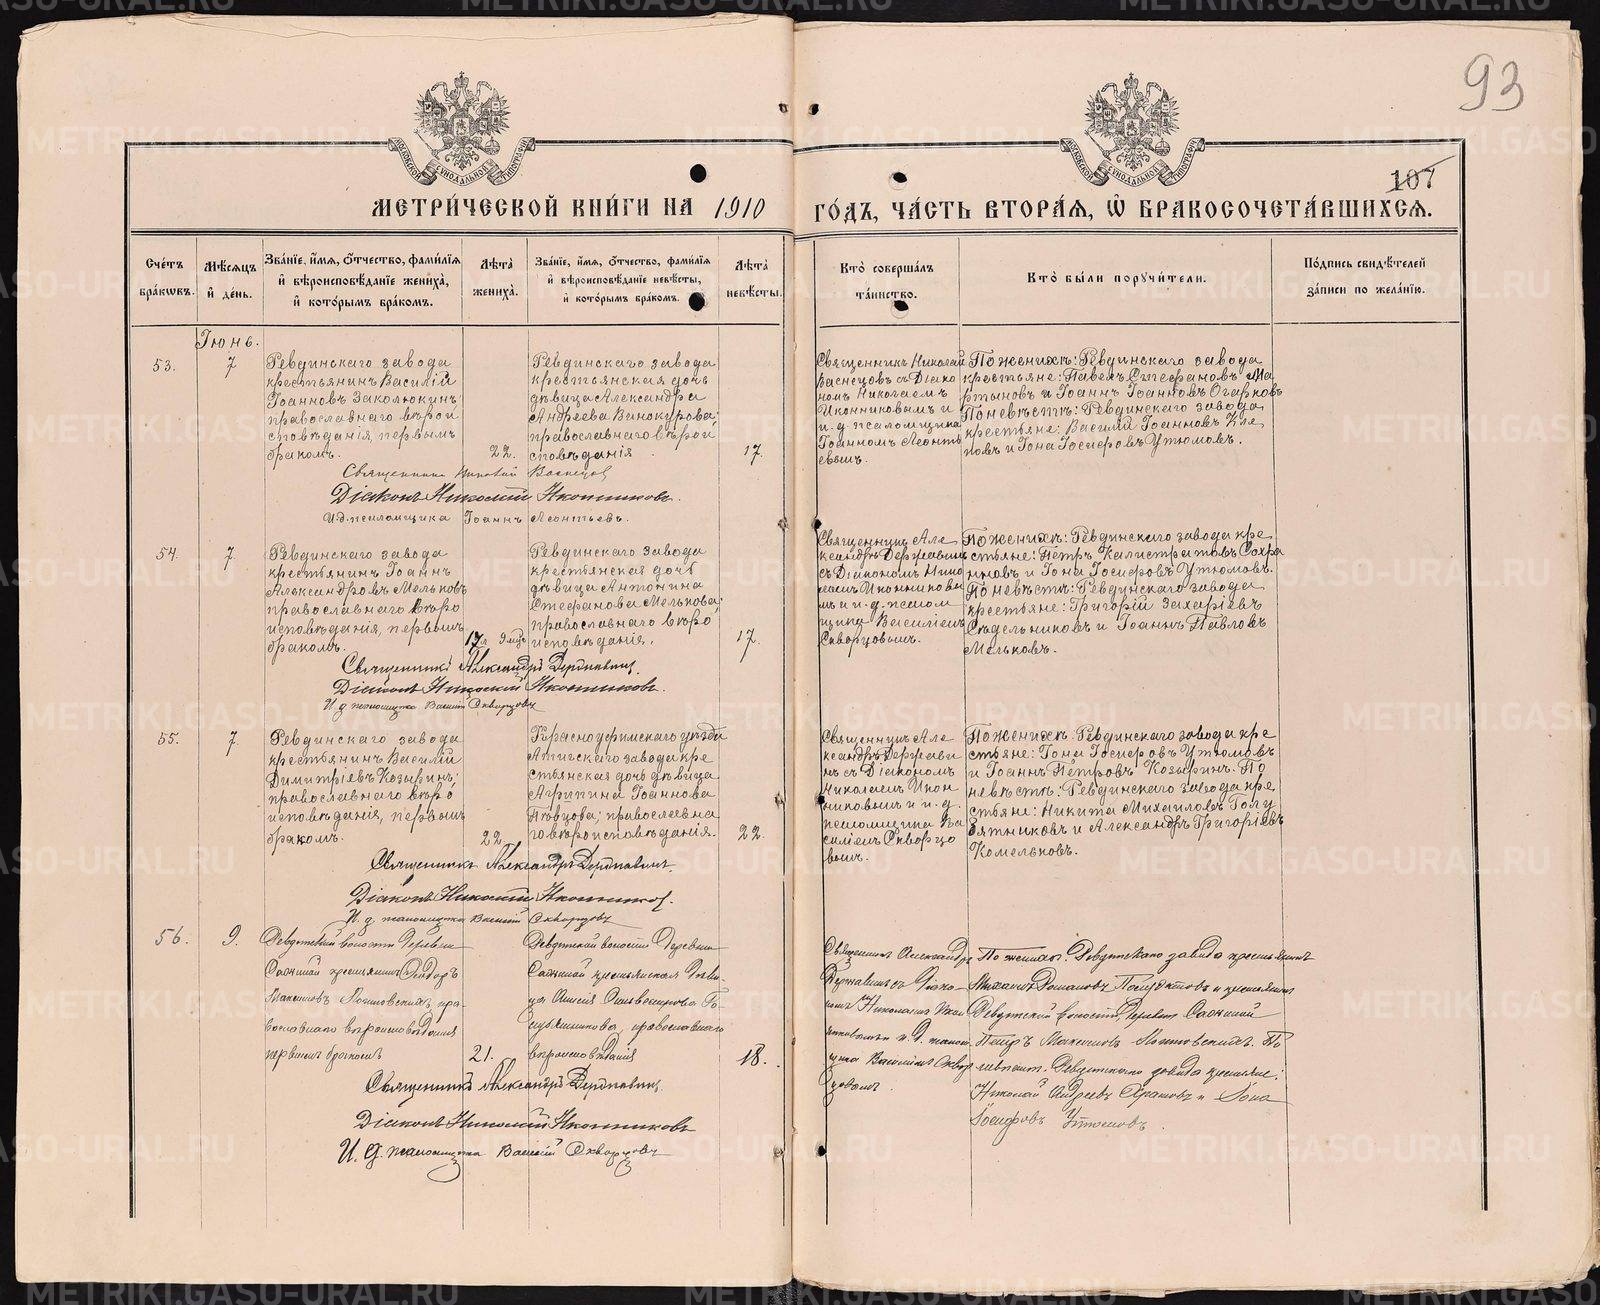 93
107
МЕТРИ́ЧЕСКОЙ КНИ́ГИ НА 1910 ГО́ДЪ, ЧА́СТЬ ВТОРА́Я, Ѡ БРАКОСОЧЕТА́ВШИХСЯ.
Сче́тъ бра́кѡвъ.
Мѣ́сяцъ и де́нь.
Зва́нїе, и́мя, ѻ́тчество, фами́лїя и вѣроисповѣ́данїе жениха̀, и кото́рымъ бра́комъ.
Лѣ́та жениха̀.
Зва́нїе, и́мя, ѻ́тчество, фами́лїя и вѣроисповѣ́данїе невѣ́сты, и кото́рымъ бра́комъ.
Лѣ́та невѣ́сты.
Кто̀ соверша́лъ та́инство.
Кто̀ бы́ли поручи́тели.
По́дпись свидѣ́телей за́писи по жела́нїю.
Іюнь.
53.
7
Ревдинскаго завода
крестьянинъ Василій
Іоанновъ Заколюкинъ
православнаго вѣрои
сповѣданія, первымъ
бракомъ.
22.
Ревдинскаго завода
крестьянская дочь
дѣвица Александра
Андреева Винокурова;
православнаго вѣрои
сповѣданія
17.
Священникъ Николай
Васнецовъ съ Діако
номъ Николаемъ
Иконниковымъ и
и. д. псаломщика
Іоанномъ Леонть
евымъ.
По женихѣ: Ревдинскаго завода
крестьяне: Павелъ Стефановъ Ма
ртыновъ и Іоаннъ Іоанновъ Огарковъ
По невѣстѣ: Ревдинскаго завода
крестьяне: Василій Іоанновъ Кле
повъ и Іона Іосифовъ Утюмовъ.
Священникъ Николай Васнецов
Діаконъ Николай Иконниковъ.
И. д. псаломщика Іоаннъ Леонтьевъ.
54.
7
Ревдинскаго завода
крестьянинъ Іоаннъ
Александровъ Мельковъ
православнаго вѣро
исповѣданія, первымъ
бракомъ.
17 л 9 мцъ
Ревдинскаго завода
крестьянская дочь
дѣвица Антонина
Стефанова Мелькова;
православнаго вѣро
исповѣданія.
17.
Священникъ Але
ксандръ Державинъ
съ Діакономъ Нико
лаемъ Иконниковы
мъ и и. д. псалом
щика Василіемъ
Скворцовымъ.
По женихѣ: Ревдинскаго завода кре
стьяне: Петръ Калистратовъ Сохра
нновъ и Іона Іосифовъ Утюмовъ.
По невѣстѣ: Ревдинскаго завода
крестьяне: Григорій Захаріевъ
Сѣдельниковъ и Іоаннъ Павловъ
Мельковъ.
Священникъ Александръ Державинъ.
Діаконъ Николай Иконниковъ.
И. д. псаломщика Василій Скворцовъ
55.
7
Ревдинскаго завода
крестьянинъ Василій
Димитріевъ Козыринъ;
православнаго вѣро
исповѣданія, первымъ
бракомъ.
22
Красноуфимскаго уѣзда
Атигскаго завода кре
стьянская дочь дѣвица
Агрипина Іоаннова
Пѣвцова; православна
го вѣроисповѣданія.
22.
Священникъ Але
ксандръ Держави
нъ съ Діакономъ
Николаемъ Икон
никовымъ и и. д.
псаломщика Ва
силіемъ Скворцо
вымъ.
По женихѣ: Ревдинскаго завода кре
стьяне: Іона Іосифовъ Утюмовъ
и Іоаннъ Петровъ Козыринъ. По
невѣстѣ: Ревдинскаго завода кре
стьяне: Никита Михаиловъ Голу
бятниковъ и Александръ Григоріевъ
Комельковъ.
Священникъ Александръ Державинъ.
Діаконъ Николай Иконниковъ.
И. д. псаломщика Василій Скворцовъ
56.
9.
Ревдинской волости Деревни
крестьянинъ
Максимовъ пра
вославнаго вѣроисповѣданія
первымъ бракомъ
21.
Ревдинской волости Деревни
крестьянская дѣви
ца
православнаго
вѣроисповѣданія
18.
Священникъ Александръ
Державинъ съ Діако
номъ Николаемъ Икон
никовымъ и и. д. псалом
щика Василіемъ Сквор
цовымъ.
По женихѣ: Ревдинскаго завода крестьянинъ
Михаилъ и крестьянинъ
Ревдинской волости, Деревни
Петръ Максимовъ По
невѣстѣ: Ревдинскаго завода крестьяне:
Николай Андреевъ и Іона
Іосифовъ Утюмовъ.
Священникъ Александръ Державинъ.
Діаконъ Николай Иконниковъ
И. д. псаломщика Василій Скворцовъ
METRIKI.GASO-URAL.RU